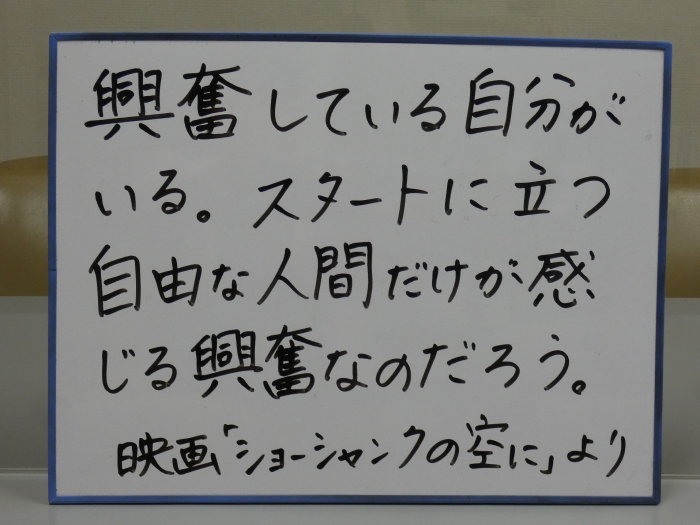 興奮している自分が
いる。スタートに立つ
自由な人間だけが感
じる興奮なのだろう。
映画「ショーシャンクの空に」より